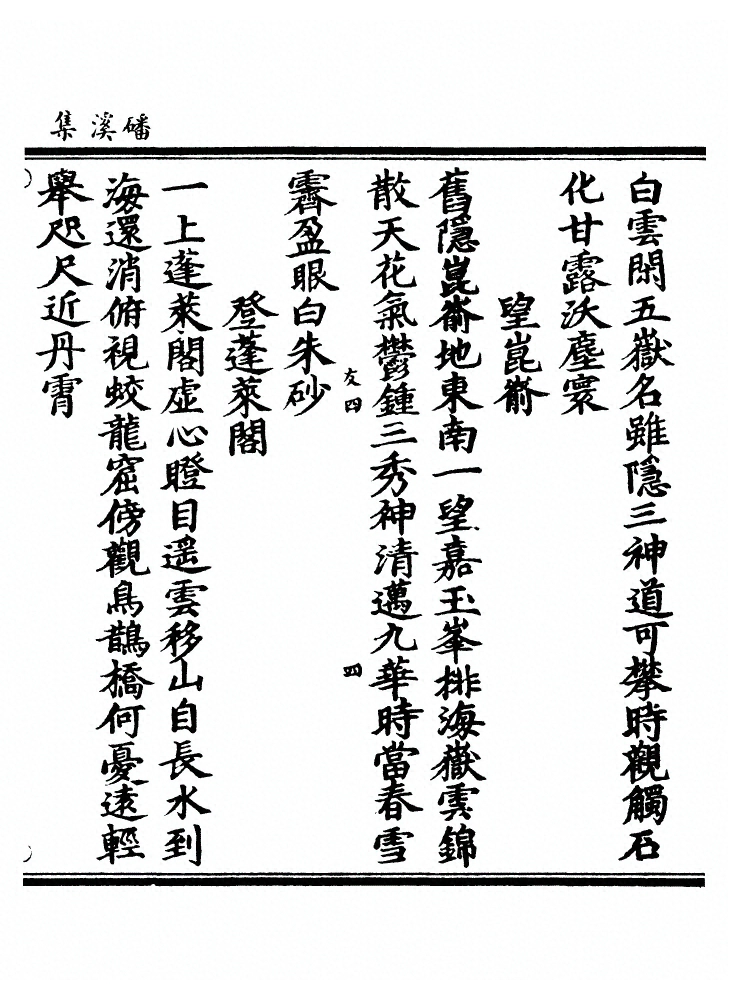 磻溪集
白雲閑五嶽名雖隱三神道可攀時觀觸石
化甘露沃塵寰
望崑崳
舊隱崑崳地東南一望嘉玉峯排海嶽雲錦
散天花氣鬱鍾三秀神清邁九華時當春雪
友四
四
霽盈眼白朱砂
登蓬萊閣
一上蓬萊閣虛心瞪目遥雲移山自長水到
海還消俯視蛟龍窟傍觀烏鵲橋何憂遠輕
舉咫尺近丹霄